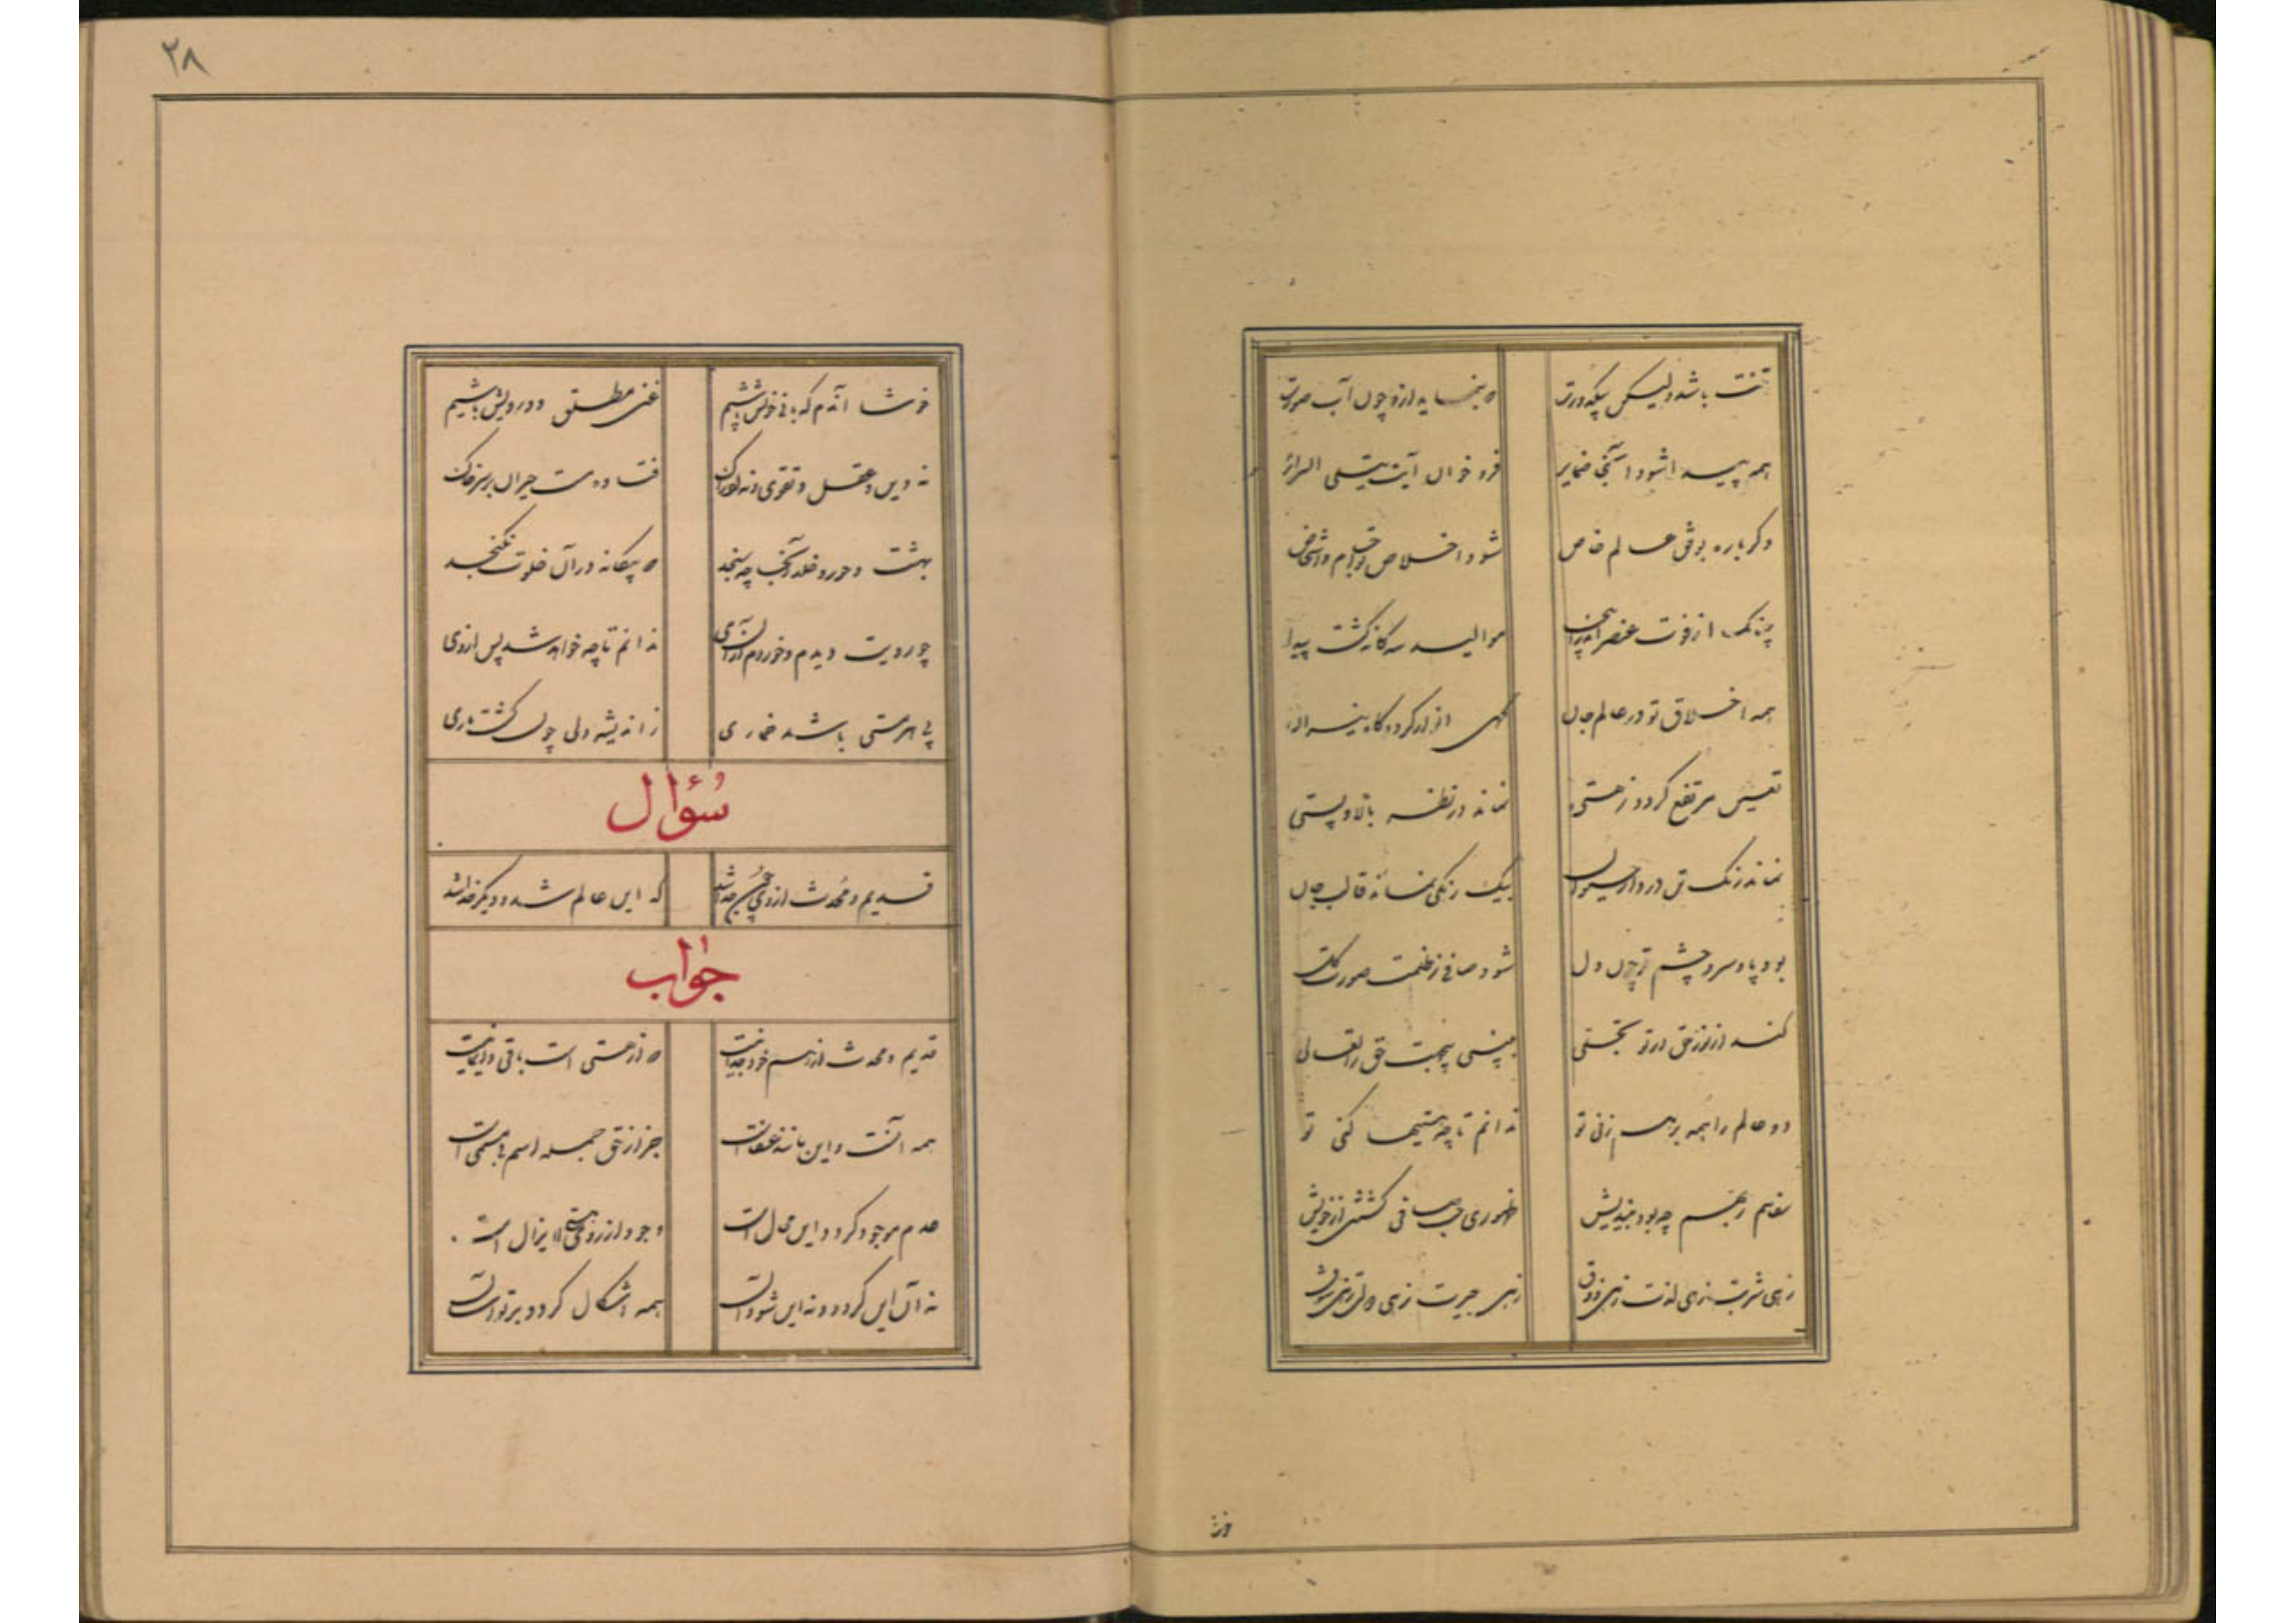 تنت باشد ولیکن بی‌کدورت که بنماید از او چون آب صورت
همه پیدا شود آنجا ضمایر فرو خوان آیت تبلی السرائر
دگر باره بوفق عالم خاص شود اخلاق تو اجسام و اشخاص
چنانک از قوت عنصر در اینجا موالید سه گانه گشت پیدا
همه اخلاق تو در عالم جان گهی انوار گردد گاه نیران
تعین مرتفع گردد ز هستی نماند در نظر بالا و پستی
نماند مرگ تن در دار حیوان بیک رنگی نماند قالب جان
بود پا و سر و چشم تو چون دل شود صافی ز ظلمت صورت گل
کند از نور حق در تو تجلی ببینی بی‌جهت حق را تعالی
دو عالم را همه بر هم زنی تو ندانم تا چه مستیها کنی تو
سقاهم ربهم چه بود بیندیش طهوری چیست صافی گشتن از خویش
زهی شربت زهی لذت زهی ذوق زهی حیرت زهی دولت زهی شوق
خوشا
۲۸
خوشا آندم که ما بی خویش باشیم غنی مطلق و درویش باشیم
نه دین و عقل و تقوی و نه ادراک فتاده مست حیران بر سر خاک
بهشت و حور و خلد آنجا چه سنجد که بیگانه در آن خلوت نگنجد
چو رویت دیدم و خوردم از آن می ندانم تا چه خواهد شد پس از وی
پی هر مستی باشد خماری ز اندیشه دلی چون گشت باری
سُؤال
قدیم و محدث از وی چون جدا شد که این عالم شد و دیگر خدا شد
جواب
قدیم و محدث از هم خود جدا نیست که از هستی است باقی دایما نیست
همه آنست و این مانند عنقاست جز از حق جمله اسم بی مسمی است
عدم موجود گردد این محال است وجود از روی هستی لا یزال است
نه آن این گردد و نه این شود آن همه اشکال گردد بر تو آسان